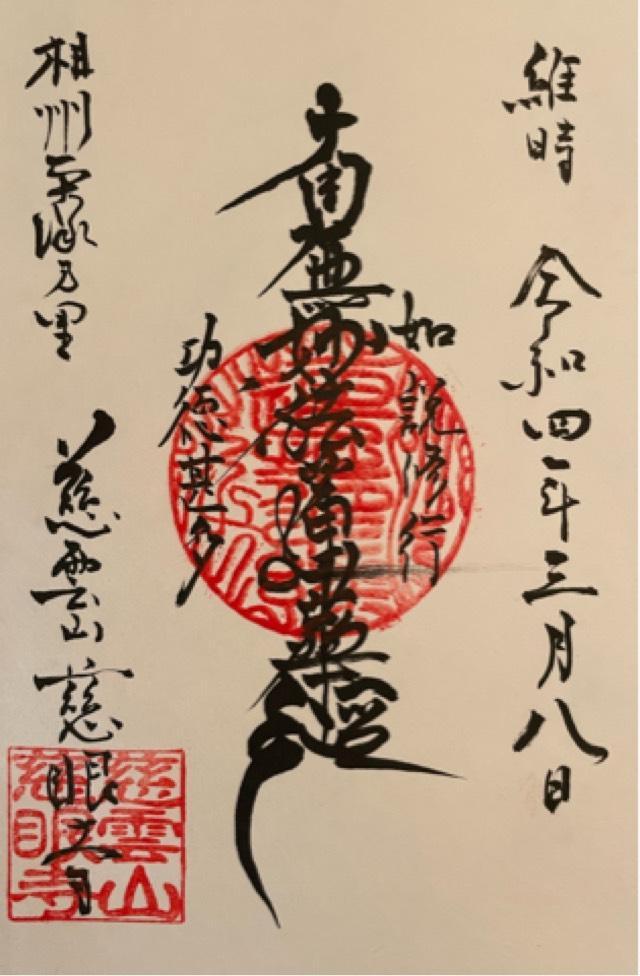 維時 令和四年三月八日
如説修行
南無妙法蓮華經
功徳甚多
相州
慈雲山 慈眼寺
慈雲山
慈眼寺